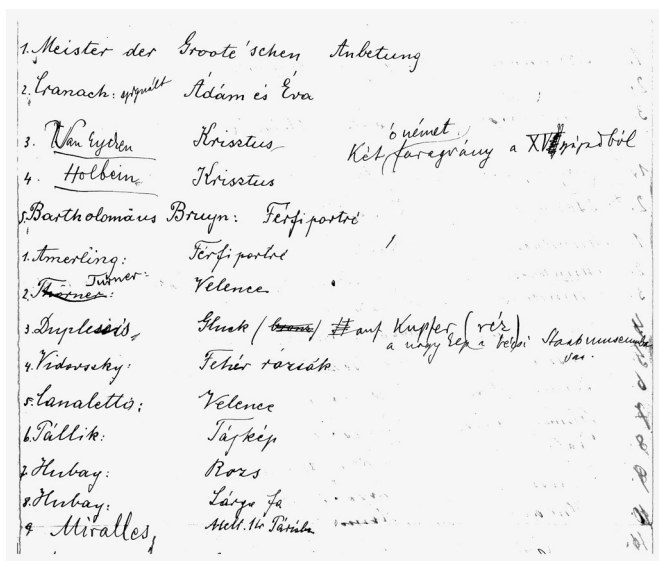 1. Meister der Groote'schen Anbetung
2. Cranach: signált Ádám és Éva
3. Van Eycken Krisztus
ó német.
Két faragvány a XV századból
4. Holbein Krisztus
5. Bartholomäus Bruyn: Férfi portré
1. Amerling: Férfi portré
2. Thörner: Turner: Velence
3. Duplessis, Gluck ( bronz ) auf Kupfer (réz)
a nagy kép a bécsi
4. Vidovszky: Fehér rózsák
5. Canaletto: Velence
6. Tállik: Tájkép
7. Hubay: Rozs
8. Hubay: Sárga fa
9 Miralles,